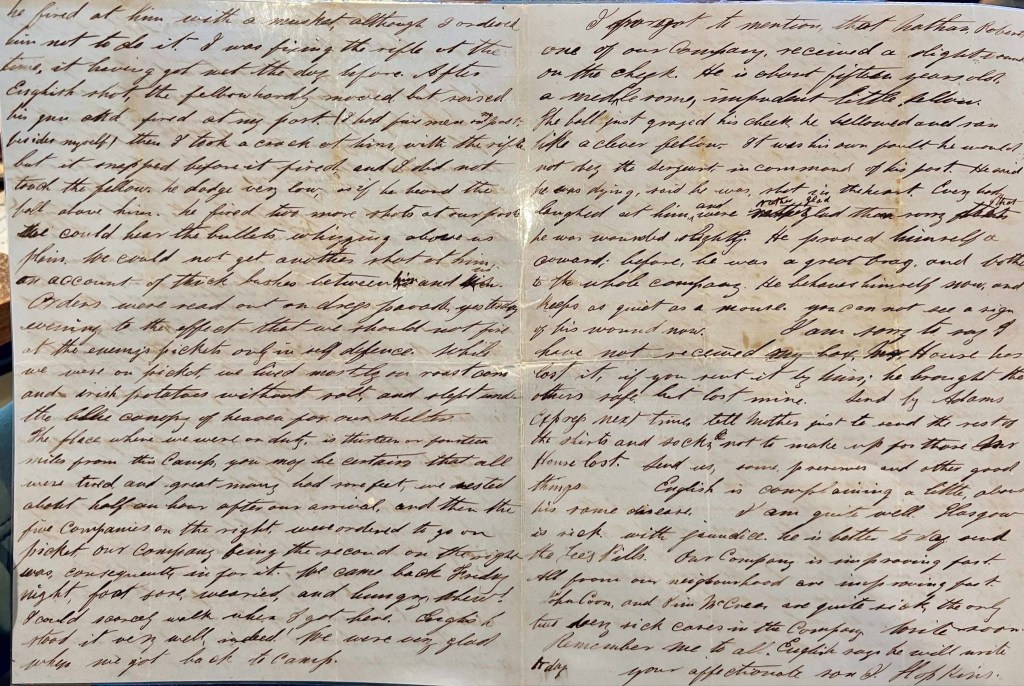 he fired at him with a musket, although I ordered
him not to do it. I was fixing the rifle at the
time, it having got wet the day before. After
English shot, the fellow hardly moved but raised
his gun and fired at my post (I had five men in post
besides myself) then I took a crack at him, with the rifle
but it snapped before it fired, and I did not
touch the fellow. he dodge very low, as if he heard the
ball above him. he fired two more shots at our post
we could hear the bullets whizzing above us
plain. We could not get another shot at him
on account of thick bushes between him and
Orders were read out on dress parade, yesterday
evening to the effect that we should not fire
at the enemy's pickets only in self defence. While
we were on picket we lived mostly on roast corn
and irish potatoes without salt, and slept under
the blue canopy of heaven for our shelter
The place where we were on duty, is thirteen or fourteen
miles from this Camp, you may be certain that all
were tired and great many had sore feet, we rested
about half an hour after our arrival, and then the
five Companies on the right, were ordered to go on
picket our company being the second on the right
was, consequently in for it. We came back Friday
night, foot sore, wearied, and hungry,
I could scarcely walk when I got here. English
stood it very well, indeed! We were very glad
when we got back to Camp.
I forgot to mention, that Nathan Roberts
one of our Company, received a slight wound
on the cheek. He is about fifteen years old.
a meddlesome, impudent little fellow.
The ball just grazed his cheek, he bellowed and ran
like a clever fellow. It was his own fault he would
not obey the sergeant in command of his post. He said
he was dying, said he was, shot in the heart. Every body
laughed at him, and were rather glad than sorry that
he was wounded slightly. He proved himself a
coward; before, he was a great brag, and bother
to the whole company. He behaves himself now, and
keeps as quiet as a mouse. you can not see a sign
of his wound now. I am sorry to say I
have not received my box, House has
lost it, if you sent it by him; he brought the
others safe, but lost mine. Send by Adams
Express next time, tell Mother just to send the rest of
the shirts and socks, not to make up for those
House lost. Send us, some, preserves and other good
things. English is complaining a little, about
his same disease. I am quite well Glasgow
is sick with jaundice. he is better to day send
the Pills. Our Company is improving fast.
All from our neighbourhood are improving fast.
Coon, and Jim McCrea, are quite sick, the only
two very sick cases in the Company Write soon
Remember me to all. English says he will write
to day
your affectionate son J. Hopkins.